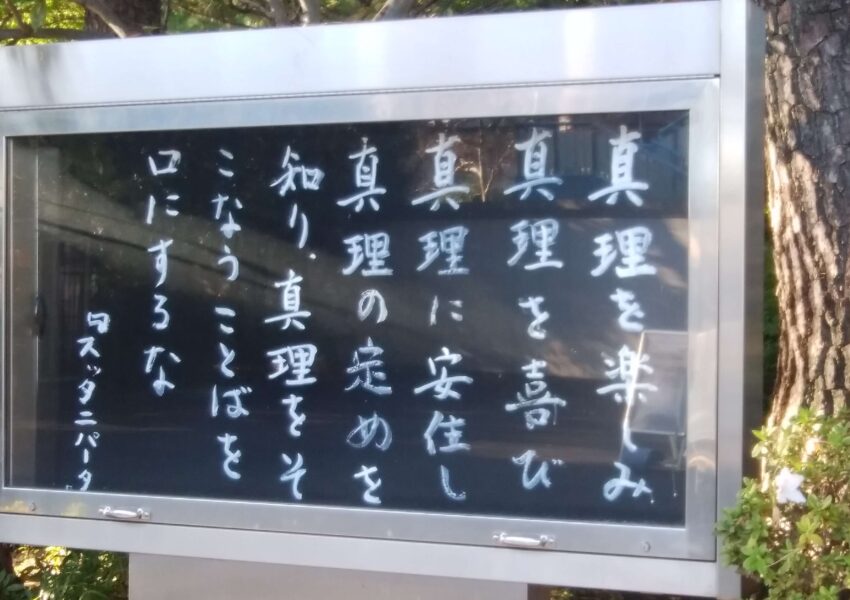 真理を楽しみ
真理を喜び
真理に安住し
真理の定めを
知り、真理をそ
こなうことばを
口にするな
スッタニパータ